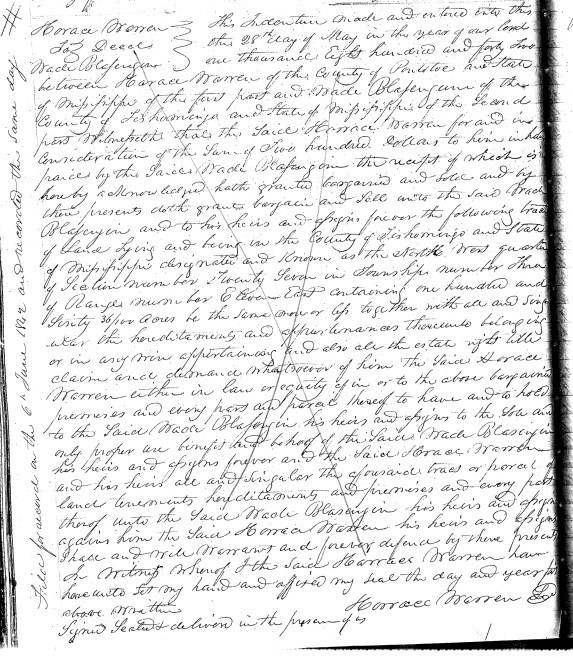 Horace Warren
To Deed
Wade Blasengim
This Indenture made and entered into this
the 28th day of May in the year of our Lord
one thousand Eight hundred and forty two
between Horace Warren of the County of Pontotoc and State
of Mississippi of the first part and Wade Blasengim of the
County of Tishomingo and State of Mississippi of the Second
part Witnesseth that the Said Horrace Warren for and in
Consideration of the Sum of Two hundred Dollars to him in hand
paid by the Said Wade Blasengim the receipt of which is
hereby acknowledged hath granted bargained and Sold and by
these presents doth grant bargain and Sell unto the said Wade
Blasengim and to his heirs and assigns forever the following tract
of Land Lying and being in the County of Tishomingo and State
of Mississippi designated and Known as the North West quarter
of Section number Twenty Seven in Township number Three
of Range number Eleven East containing one hundred and
Sixty 36/100 Acres be the Same more or less together with all and Sing
ular the hereditaments and appurtenances thereunto belonging
or in any wise appertaining and also all the estate right title
claim and demand whatsoever of him the Said Horace
Warren either in law or equity of in or to the above bargained
premises and every part and parcel thereof to have and to hold
to the Said Wade Blasengim his heirs and assigns to the Sole and
only proper use benefit and behoof of the Said Wade Blasengim
his heirs and assigns forever and the Said Horace Warren
and his heirs all and Singular the aforesaid tract or parcel of
land tenements hereditaments and premises and every part
thereof unto the Said Wade Blasengim his heirs and assigns
against him the Said Horrace Warren his heirs and assigns
Shall and will Warrant and forever defend by these presents
In Witness whereof I the Said Harrace Warren have
hereunto Set my hand and affixed my Seal the day and year first
above written
Horrace Warren
Signed Sealed & delivered in the presence of us
Filed for record on the 6th June 1842 and recorded the Same day